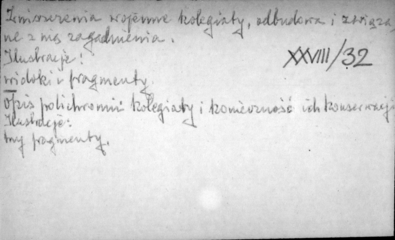 Zniszczenia wojenne kolegiaty, odbudowa i związa
ne z nią zagadnienia.
Ilustracje:
XXVIII/32
widoki i fragmenty.
Opis polichromii kolegiaty i konieczność ich konserwacji
Ilustracje:
trzy fragmenty.